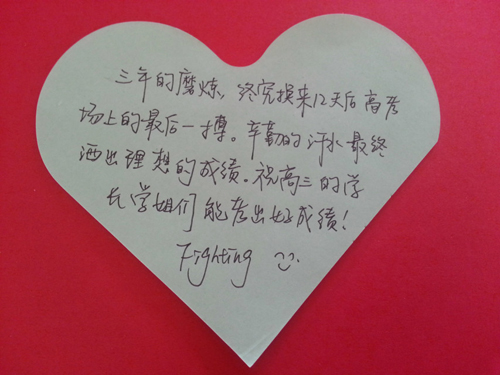 三年的磨炼、终究换来12天后高考
场上的最后一搏。辛勤的汗水最终
洒出理想的成绩。祝高三的学
长学姐们能考出好成绩！
Fighting